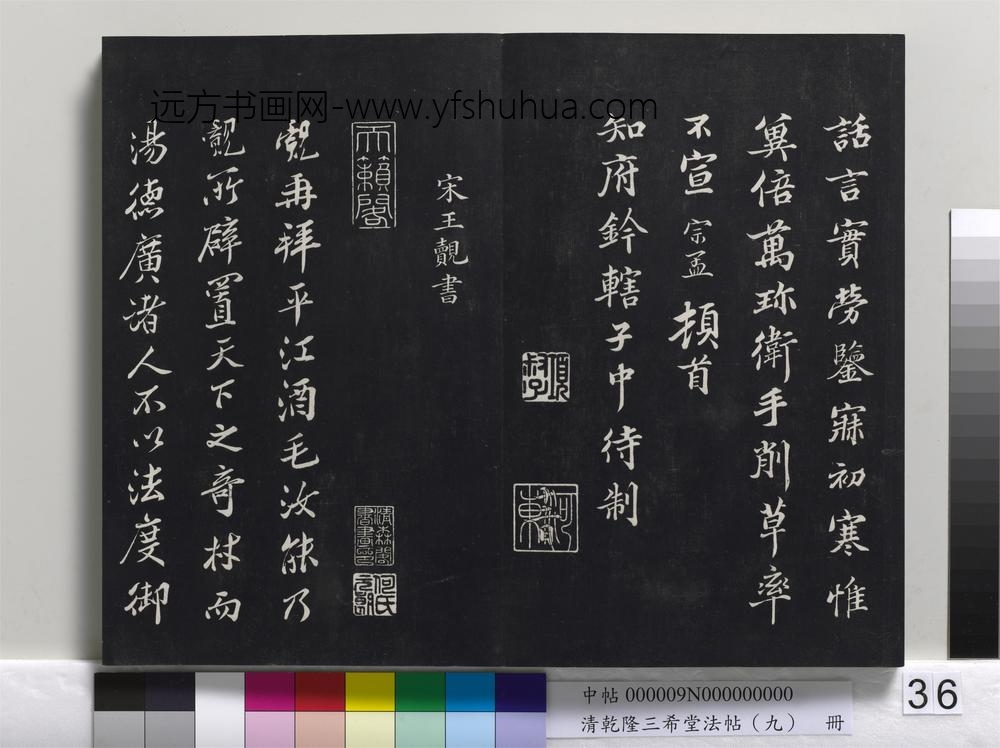 远方书画网-www.yfshuhua.com
話言實勞鑒寐初寒惟
冀倍萬珎衛手削草率
不宣宗孟頓首
知府鈐轄子中待制
宋王覿書
天籟閣
覿再拜平江酒毛汝能乃
覿所辟置天下之奇材而
湯德廣諸人不以法度御
中帖 000009N000000000
清乾隆三希堂法帖（九） 冊
36